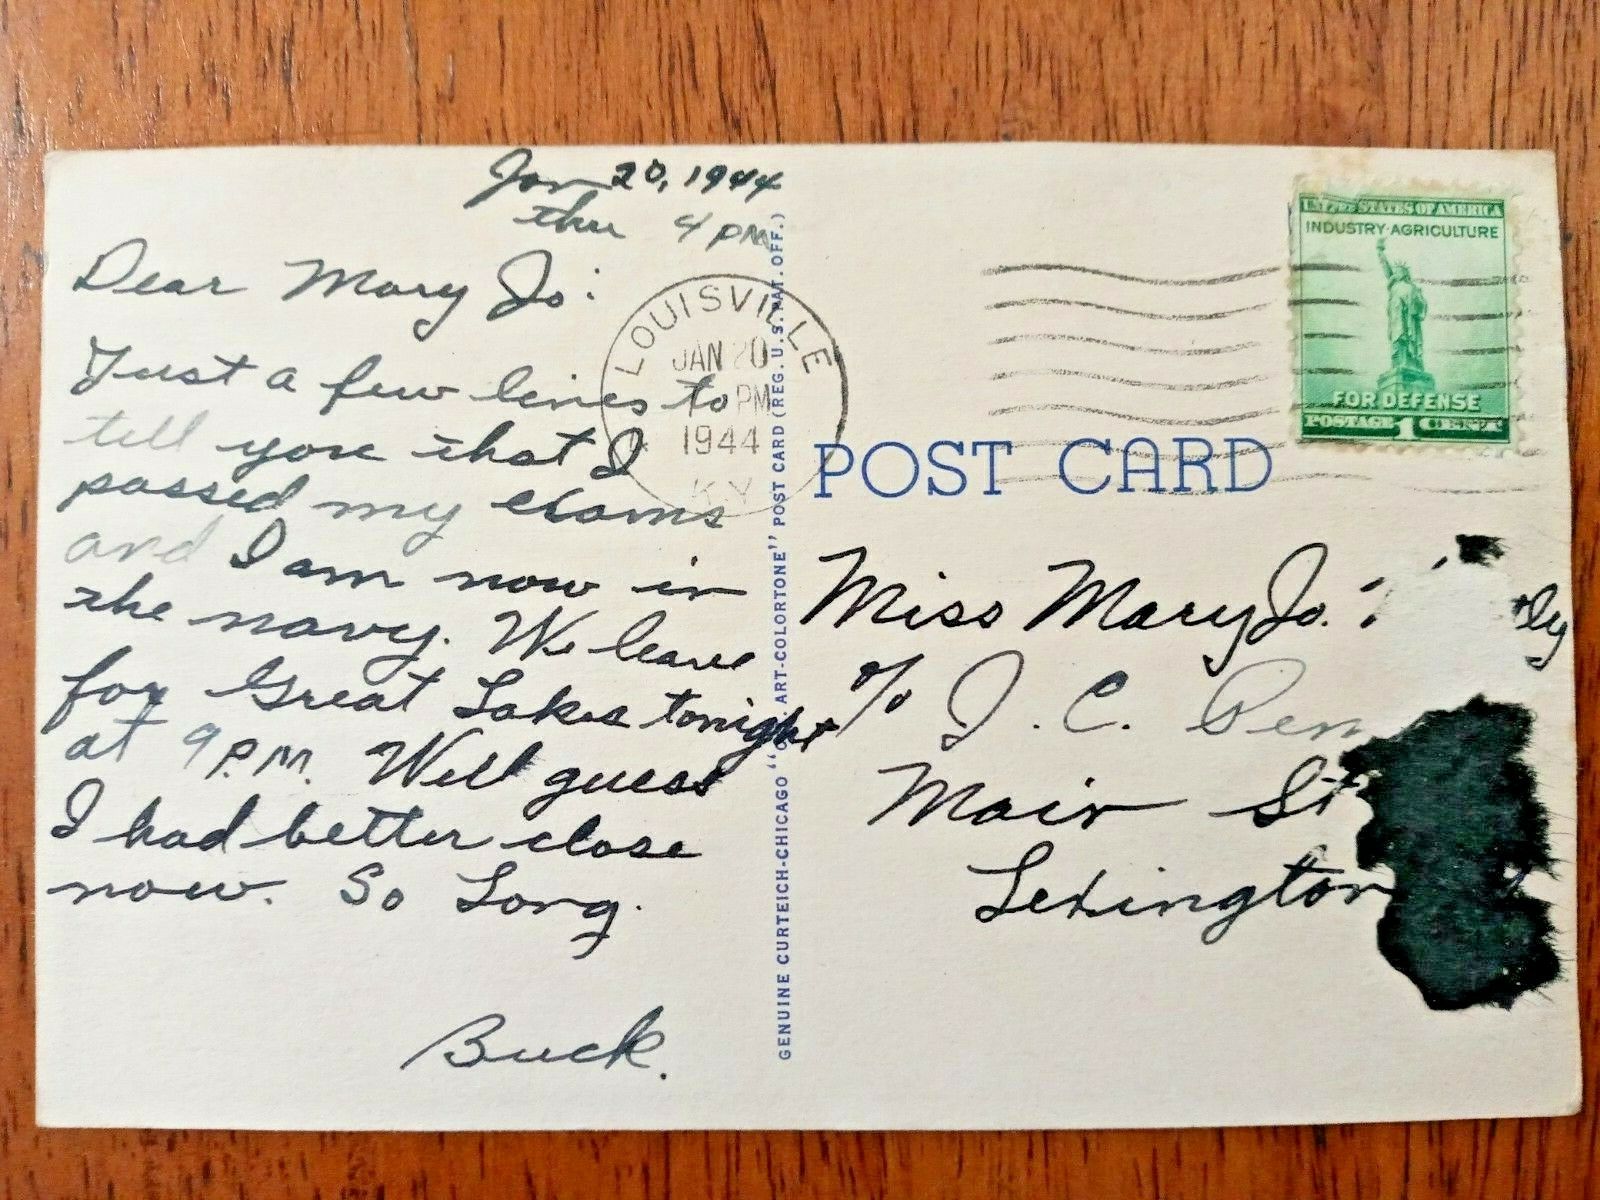 Jan 20, 1944
thu 4 PM
Dear Mary Jo:
Just a few lines to
tell you that I
passed my exams
and I am now in
the navy. We leave
for Great Lakes tonight
at 9 P.M. Well guess
I had better close
now. So Long.
Buck.
LOUISVILLE
JAN 20
PM
1944
KY
GENUINE CURTEICH-CHICAGO "C.T. ART-COLORTONE" POST CARD (REG. U.S. PAT. OFF.)
UNITED STATES OF AMERICA
INDUSTRY·AGRICULTURE
FOR DEFENSE
POSTAGE 1 CENT
POST CARD
Miss Mary Jo.
c/o J. C. Pen
Main St
Lexington